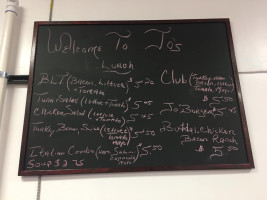 Welcome To Jo's
Lunch
BLT (Bacon, Lettuce + Tomato
Tuna Salad (Lettuce + Tomato) $5
Chicken Salad (Lettuce + Tomato) $5
Turkey, Bacon, Swiss (Lettuce $5.50
Italian Combo (Ham Salami $5.50
Soup $3.75
Club (Turkey, Ham
Bacon, Lettuce
Tomato, Mayo
$5.50
Jo Burger $5
Buffalo, Chicken
Bacon Ranch
$5.50